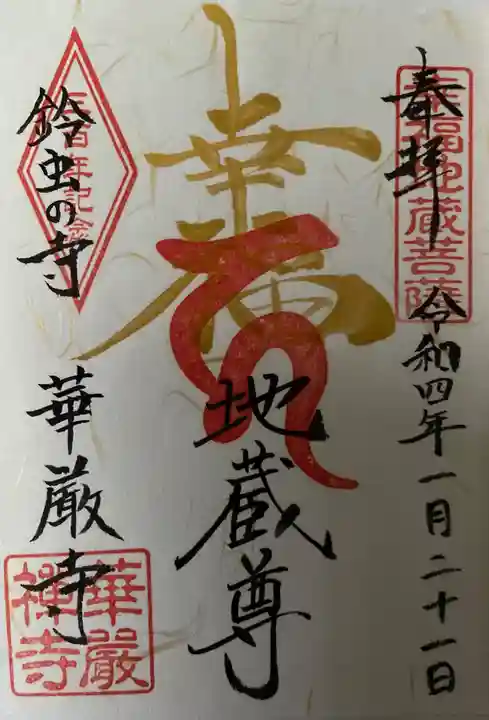 奉拝
幸福地蔵菩薩
令和四年一月二十一日
幸福
地蔵尊
三百年記念
鈴虫の寺
華厳寺
華嚴禅寺